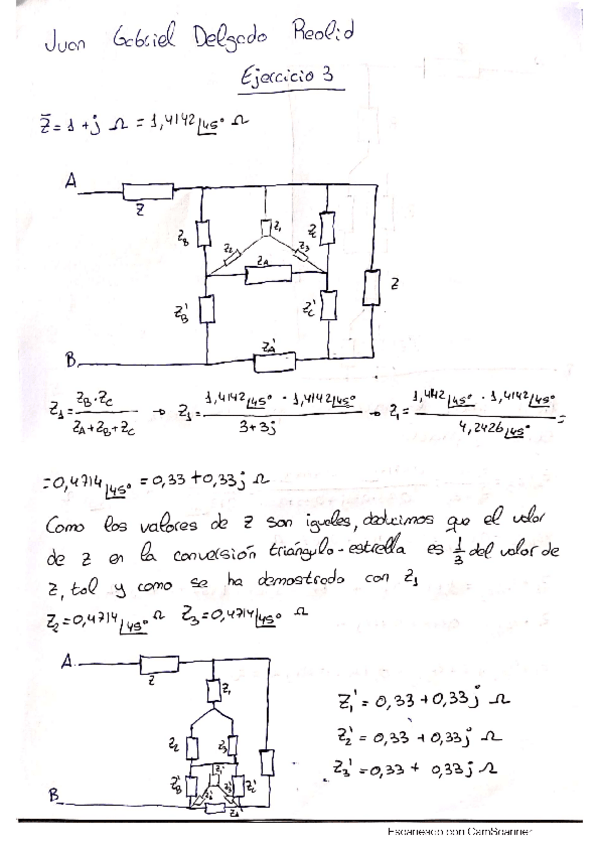 Juan Gabriel Delgado Reolid
Ejercicio 3
Z̄ = 1 + j Ω = 1,4142∠45° Ω
A
Z
Z_B
Z_2
Z_1
Z_3
Z_C
Z_A
Z
Z_B'
Z_C'
B
Z_A'
Z_1 = Z_B · Z_C / (Z_A + Z_B + Z_C) → Z_1 = 1,4142∠45° · 1,4142∠45° / (3 + 3j) → Z_1 = 1,4142∠45° · 1,4142∠45° / 4,2426∠45° =
= 0,4714∠45° = 0,33 + 0,33j Ω
Como los valores de Z son iguales, deducimos que el valor
de Z en la conversión triángulo-estrella es 1/3 del valor de
Z, tal y como se ha demostrado con Z_1
Z_2 = 0,4714∠45° Ω Z_3 = 0,4714∠45° Ω
A
Z
Z_1
Z_1' = 0,33 + 0,33j Ω
Z_2
Z_3
Z_2' = 0,33 + 0,33j Ω
Z_3' = 0,33 + 0,33j Ω
Z_B'
Z_1'
Z_2'
Z_3'
Z_C'
B
Z_A'
Escaneado con CamScanner